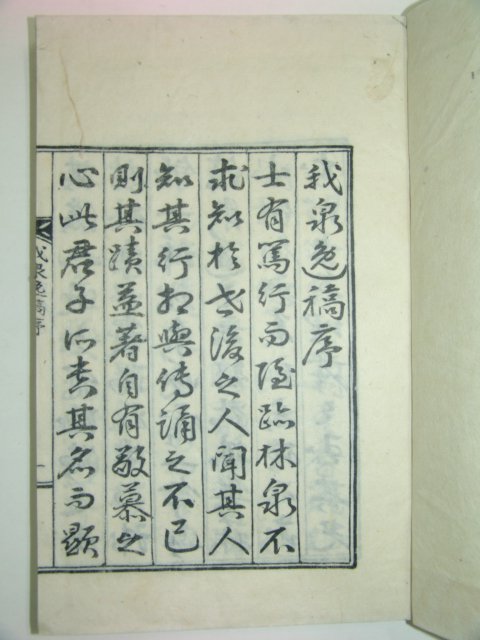 我泉逸稿序
士有篤行而隱臨林泉不
求知於世後之人聞其人
知其行相與傳誦之不已
則其蹟並著自有敬慕之
心此君子所貴其名而顯
我泉逸稿序